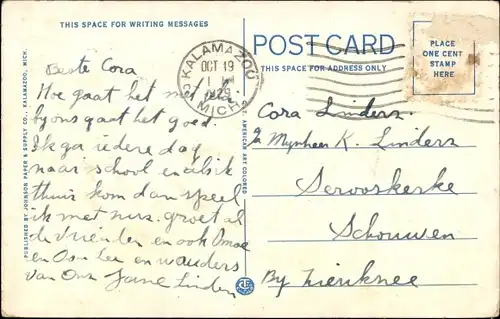 THIS SPACE FOR WRITING MESSAGES
POST CARD
THIS SPACE FOR ADDRESS ONLY
PLACE
ONE CENT
STAMP
HERE
KALAMAZOO
OCT 19
1929
MICH.
PUBLISHED BY JOHNSON PAPER & SUPPLY CO., KALAMAZOO, MICH.
AMERICAN ART COLORED
Beste Cora
Hoe gaat het met
by ons gaat het goed.
Ik ga iedere dag
naar school en als ik
thuis kom dan speel
ik met nurs. groet al
de vrienden en ook Omoe
en Oom Lee en wouders
van Ons Jane Linders
Cora Linders.
Mynheer K. Linders
Serooskerke
Schouwen
By Zierikzee